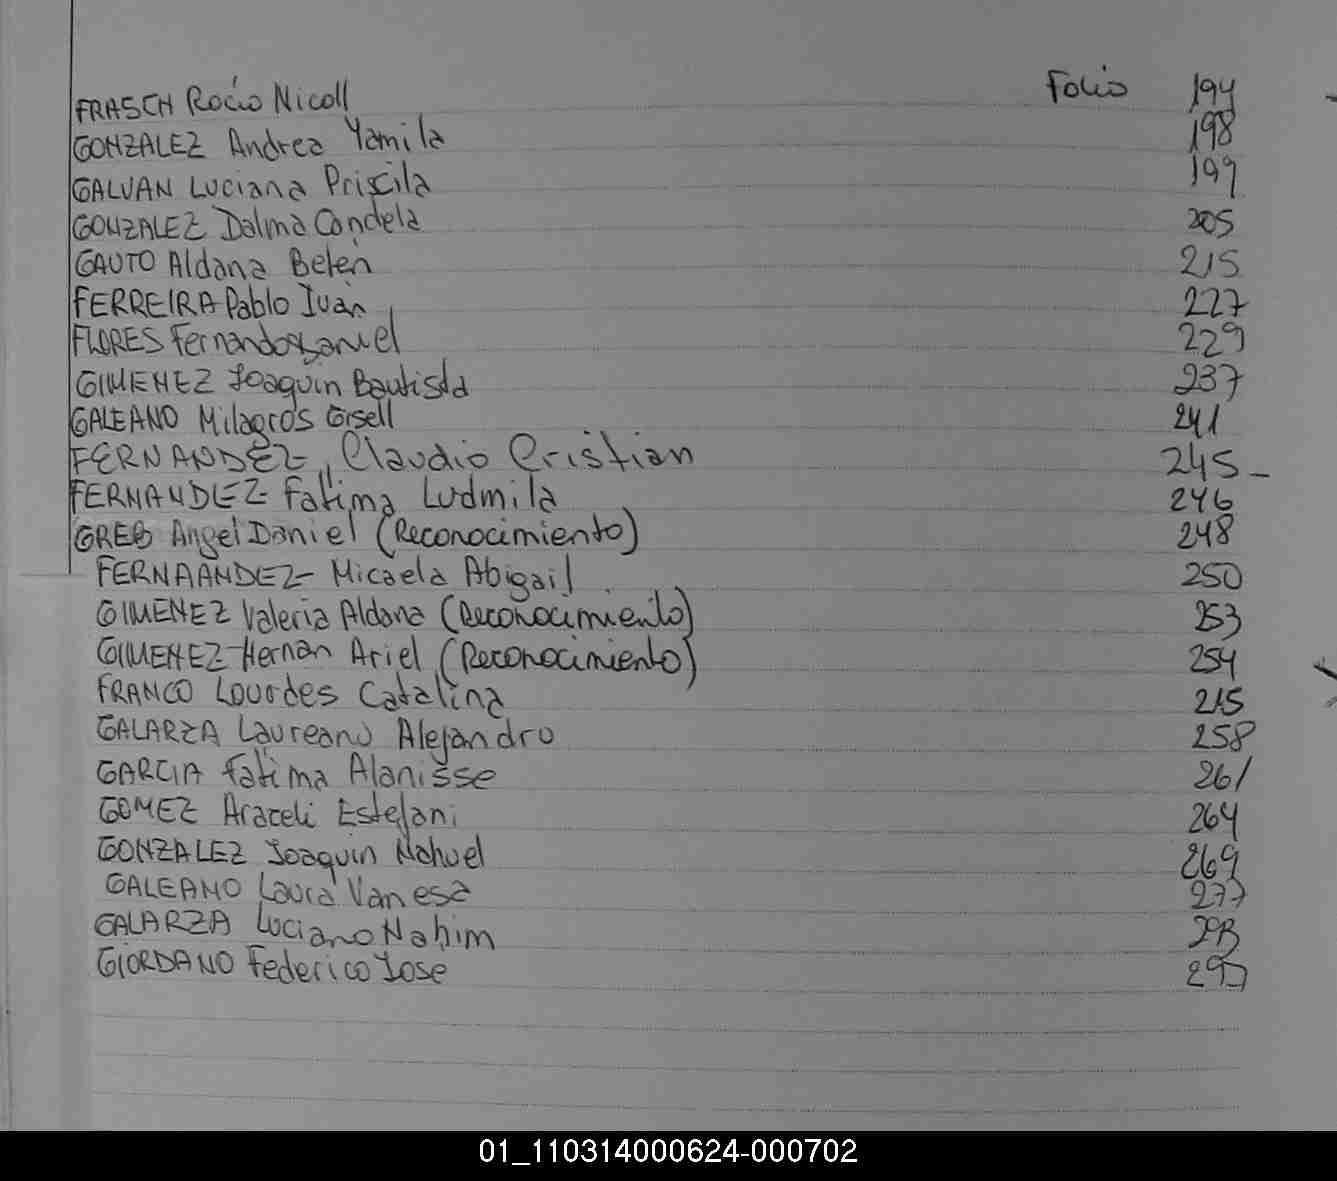 FRASCH Rocío Nicoll Folio 194
GONZALEZ Andrea Yamila 198
GALVAN Luciana Priscila 199
GONZALEZ Dalma Candela 205
GAUTO Aldana Belén 215
FERREIRA Pablo Iván 227
FLORES Fernando Daniel 229
GIMENEZ Joaquín Bautista 237
GALEANO Milagros Gisell 241
FERNANDEZ, Claudio Cristian 245_
FERNANDEZ Fatima Ludmila 246
GREB Angel Daniel (Reconocimiento) 248
FERNAANDEZ Micaela Abigail 250
GIMENEZ Valeria Aldana (Reconocimiento) 253
GIMENEZ Hernan Ariel (Reconocimiento) 254
FRANCO Lourdes Catalina 215
GALARZA Laureano Alejandro 258
GARCIA Fatima Alanisse 261
GOMEZ Araceli Estefani 264
GONZALEZ Joaquin Nahuel 269
GALEANO Laura Vanesa 277
GALARZA Luciano Nahim
GIORDANO Federico Jose
01_110314000624-000702